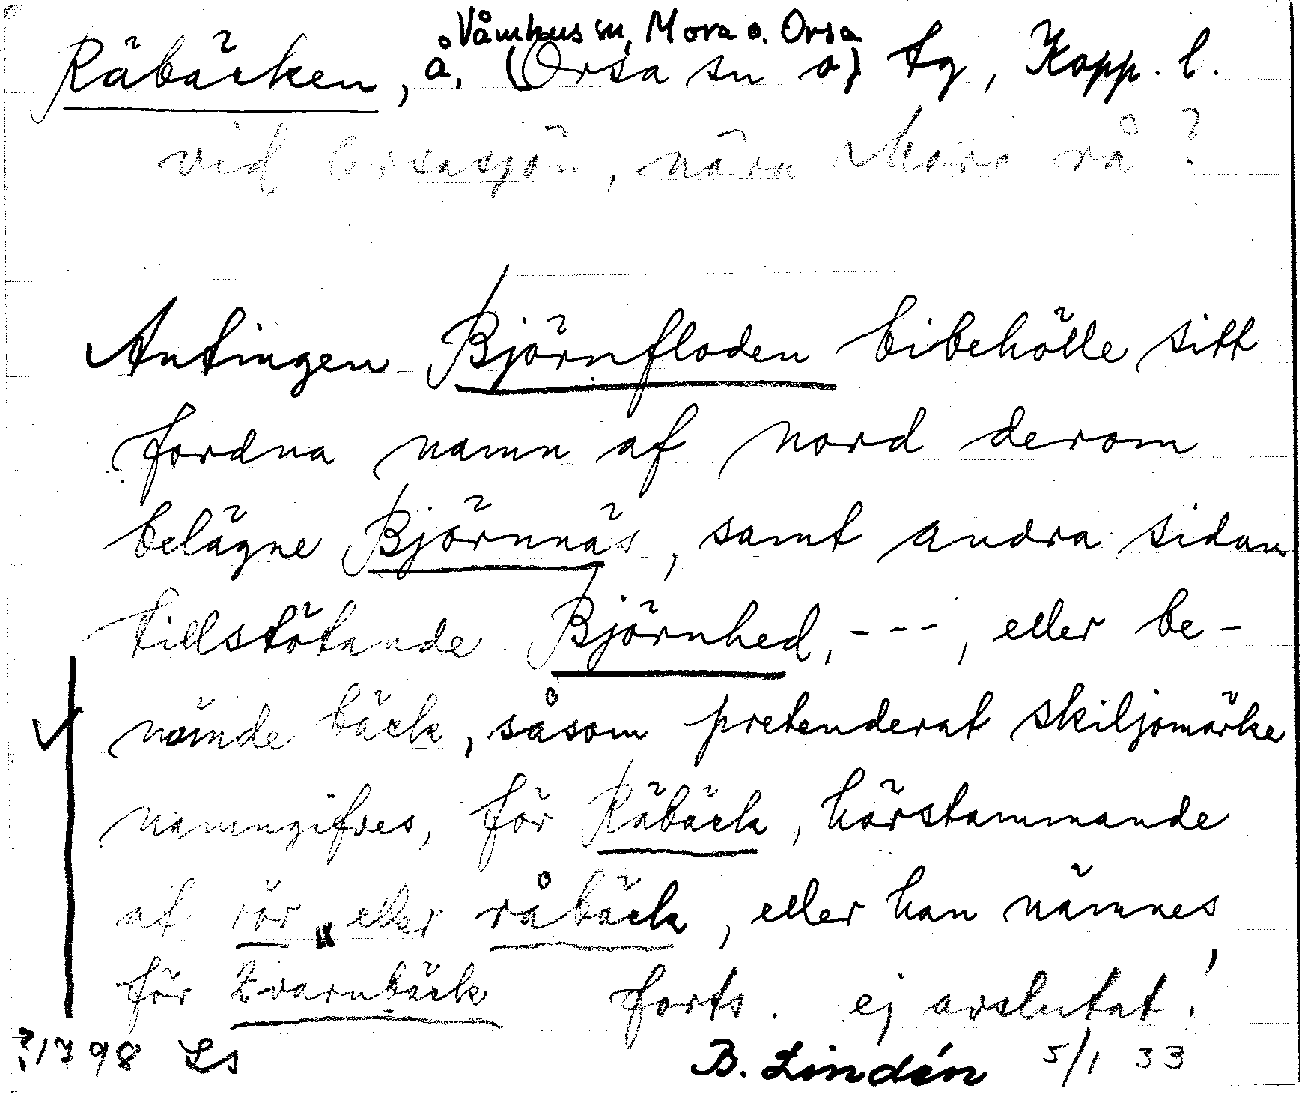 Våmhus sn, Mora o. Orsa
Räbäcken, å. (Orsa sn o) tg, Kopp. l.
vid Orsasjön, nära Mora rå?
Antingen Björnfloden bibehölle sitt
fordna namn af nord derom
belägne Björnnäs, samt andra sidan
tillstötande Björnhed, ---, eller be-
nämde bäck, såsom pretenderat skiljomärke
namngifves, för Räbäck, härstammande
af rör eller råbäck, eller han nämnes,
för Qvarnbäck forts. ej avslutat!
?1798 Ls B. Lindén 5/1 33